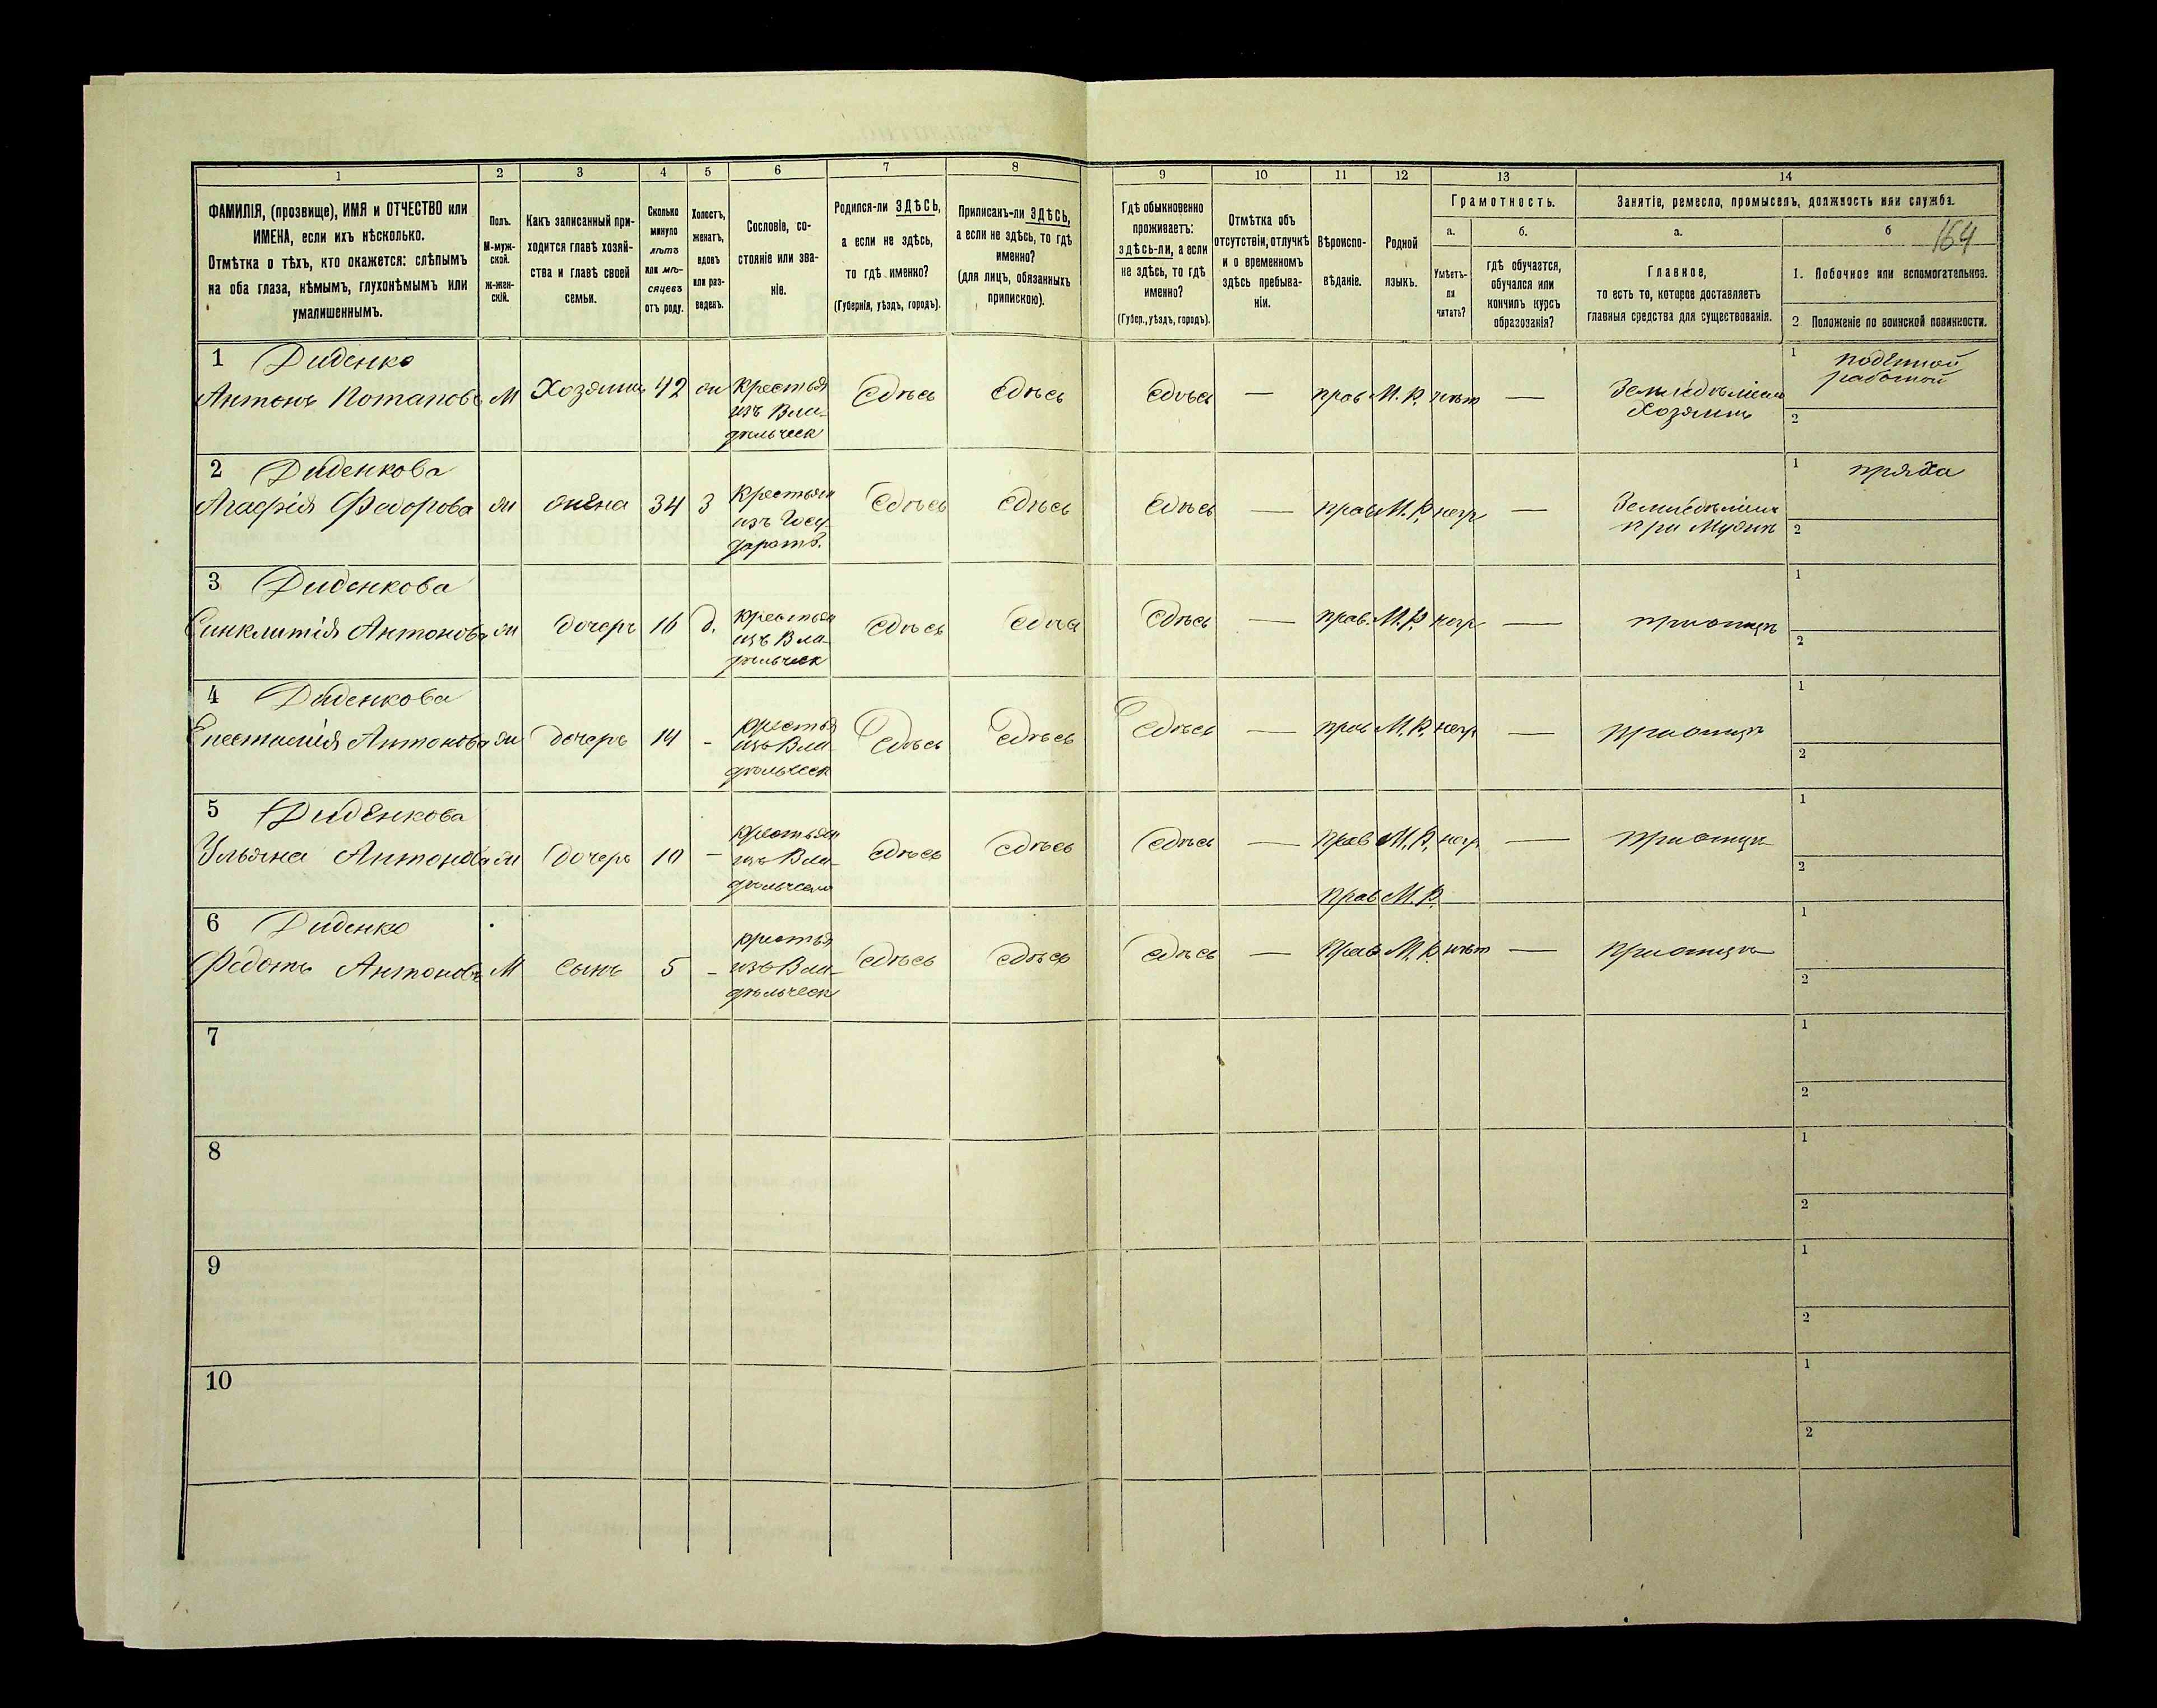 1 2 3 4 5 6 7 8 9 10 11 12 13 14
ФАМИЛІЯ, (прозвище), ИМЯ и ОТЧЕСТВО или
ИМЕНА, если ихъ нѣсколько.
Отмѣтка о тѣхъ, кто окажется: слѣпымъ
на оба глаза, нѣмымъ, глухонѣмымъ или
умалишеннымъ.
Полъ.
М-муж-
ской.
Ж-жен-
скій.
Какъ записанный при-
ходится главѣ хозяй-
ства и главѣ своей
семьи.
Сколько
минуло
лѣтъ
или мѣ-
сяцевъ
отъ роду.
Холостъ,
женатъ,
вдовъ
или раз-
веденъ.
Сословіе, со-
стояніе или зва-
ніе.
Родился-ли ЗДѢСЬ,
а если не здѣсь,
то гдѣ именно?
(Губернія, уѣздъ, городъ).
Приписанъ-ли ЗДѢСЬ,
а если не здѣсь, то гдѣ
именно?
(для лицъ, обязанныхъ
припискою).
Гдѣ обыкновенно
проживаетъ:
здѣсь-ли, а если
не здѣсь, то гдѣ
именно?
(Губер., уѣздъ, городъ).
Отмѣтка объ
отсутствіи, отлучкѣ
и о временномъ
здѣсь пребыва-
ніи.
Вѣроиспо-
вѣданіе.
Родной
языкъ.
Грамотность.
а.
Умѣетъ-
ли
читать?
б.
гдѣ обучается,
обучался или
кончилъ курсъ
образозанія?
Занятіе, ремесло, промыселъ, должность или служба.
а.
Главное,
то есть то, которое доставляетъ
главныя средства для существованія.
б
164
1. Побочное или вспомогательное.
2 Положеніе по воинской повинности.
1 Диденко
Антонъ Потаповъ М Хозяинъ 42 жн Крестья
изъ Вла-
дѣльческ
Сдѣсь Сдѣсь Сдѣсь — прав М. Р. нѣт — Земледѣліем
Хозяинъ
1 поденной
работой
2
2 Диденкова
Агафія Федорова жн жена 34 З Крестьян
изъ Госу
дарств.
Сдѣсь Сдѣсь Сдѣсь — прав М. Р. негр — Земледѣліем
при Мужѣ
1 пряха
2
3 Диденкова
Синклитія Антонова жн дочерь 16 д. крестьян
изъ Вла-
дѣльческ
Сдѣсь Сдѣсь Сдѣсь — прав. М. Р. негр — приотцѣ
1
2
4 Диденкова
Антонова жн дочерь 14 - крестья
изъ Вла-
дѣльческ
Сдѣсь Сдѣсь Сдѣсь — прав М. Р. негр — приотцѣ
1
2
5 Диденкова
Ульяна Антонова жн дочерь 10 — крестьян
изъ Вла-
дѣльческ
Сдѣсь Сдѣсь Сдѣсь — прав М. Р. негр — приотцѣ
1
2
прав М. Р.
6 Диденко
Федотъ Антоновъ М сынъ 5 - крестья
изъ Вла-
дѣльческ
Сдѣсь Сдѣсь Сдѣсь — Прав М. Р. нѣт — Приотцѣ
1
2
7
1
2
8
1
2
9
1
2
10
1
2